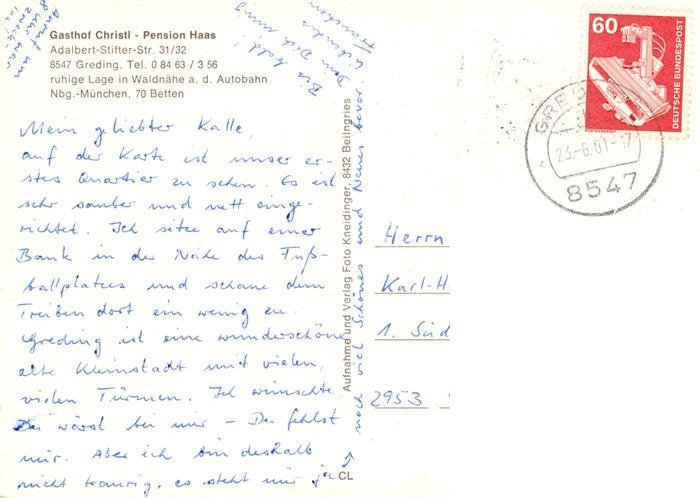 Gasthof Christl - Pension Haas
Adalbert-Stifter-Str. 31/32
8547 Greding, Tel. 0 84 63 / 3 56
ruhige Lage in Waldnähe a. d. Autobahn
Nbg.-München, 70 Betten
Mein geliebter Kalle,
auf der Karte ist unser er-
stes Quartier zu sehen. Es ist
sehr sauber und nett einge-
richtet. Ich sitze auf einer
Bank in der Nähe des Fuß-
ballplatzes und schaue dem
Treiben dort ein wenig zu.
Greding ist eine wunderschöne
alte Kleinstadt mit vielen,
vielen Türmen. Ich wünschte,
Du wärst bei mir - Du fehlst
mir. Aber ich bin deshalb
nicht traurig, es steht mir ja
noch viel Schönes und Neues bevor.
Bis bald!
Dein Dich innig
liebendes
Ankunft um
8 Uhr war
CL
Aufnahme und Verlag Foto Kneidinger, 8432 Beilngries
60
DEUTSCHE BUNDESPOST
GRE
23.-6.81-17
8547
Herrn
Karl-H
1. Süd
2953